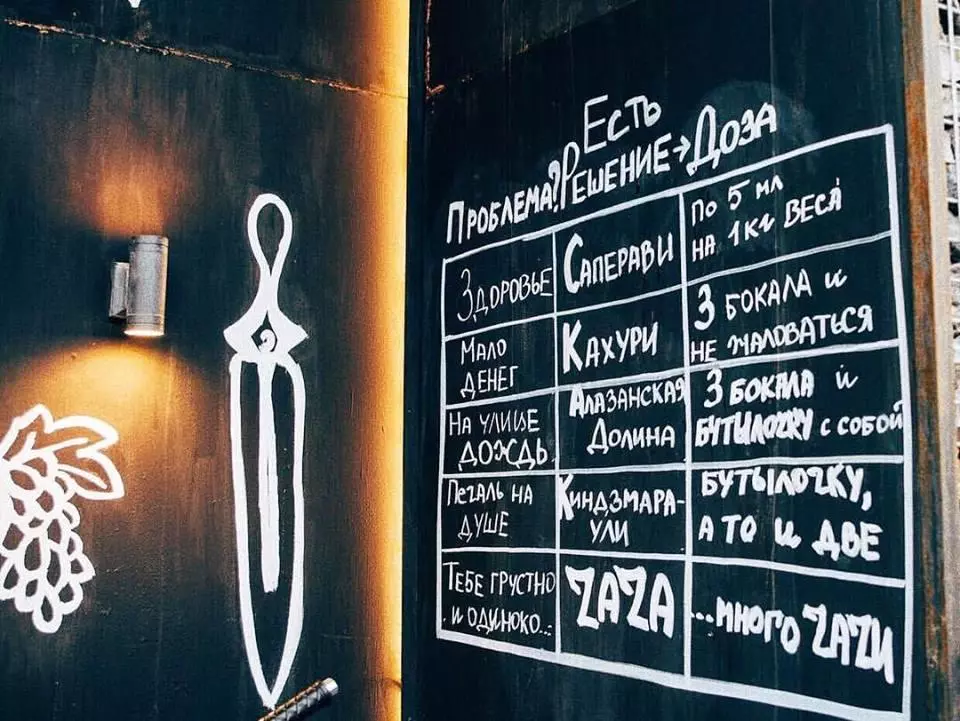 Есть
Проблема? Решение → Доза
Здоровье
Саперави
По 5 мл
на 1кг веса
Мало
денег
Кахури
3 бокала и
не жаловаться
На улице
дождь
Алазанская
Долина
3 бокала и
бутылочку с собой
Печаль на
душе
Киндзмара-
ули
Бутылочку,
а то и две
Тебе грустно
и одиноко...
ZAZA
...много ZAZИ